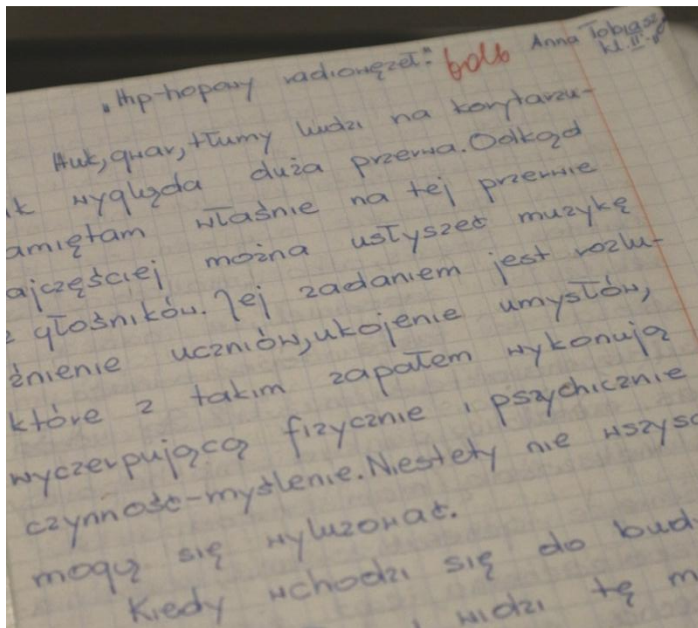 "Hip-hopowy radiowęzeł" Anna Tobiasz
kl. II
Huk, gwar, tłumy ludzi na korytarzu-
ak wygląda duża przerwa. Odkąd
amiętam właśnie na tej przerwie
ajczęściej można usłyszeć muzykę
z głośników. Jej zadaniem jest rozlu-
źnienie uczniów, ukojenie umysłów,
które z takim zapałem wykonują
wyczerpującą fizycznie i psychicznie
czynność-myślenie. Niestety nie wszysc
mogą się wyluzować.
Kiedy wchodzi się do bud
i widzi tę m